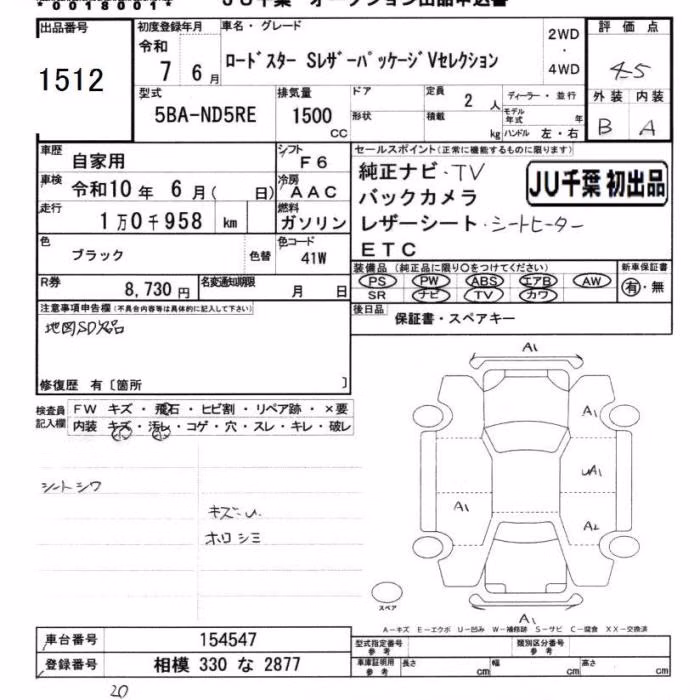 *00180014*
JU千葉 オークション出品申込書
出品番号
1512
初度登録年月
令和
7 6月
車名・グレード
ロードスター SレザーパッケージVセレクション
2WD
・
4WD
評価点
4-5
外装 内装
B A
型式
5BA-ND5RE
排気量
1500
cc
ドア
形状
定員
2 人
積載
kg
ディーラー・並行
モデル年式 年
ハンドル 左・右
車歴
自家用
シフト
F6
車検
令和10年 6月( 日)
冷房
AAC
走行
1万0千958 km
燃料
ガソリン
色
ブラック
色替
色コード
41W
R券
8,730円
名変通知期限
月 日
セールスポイント(正常に機能するものに限ります)
純正ナビ・TV
バックカメラ
レザーシート・シートヒーター
ETC
JU千葉 初出品
装備品(純正品に限り○をつけてください)
PS PW ABS エアB AW
SR ナビ TV カワ
新車保証書
有・無
後日品
保証書・スペアキー
注意事項申告欄(不具合内容等は具体的に記入して下さい)
地図SD欠品
修復歴 有〔箇所 〕
検査員
記入欄
FW キズ・飛石・ヒビ割・リペア跡・×要
内装 キズ・汚レ・コゲ・穴・スレ・キレ・破レ
小 小
シートシワ
キズ・U
ホロシミ
A1
A1
UA1
A1
A2
A1
スペア
A－キズ E－エクボ U－凹み W－補修跡 S－サビ C－腐食 XX－交換済
車台番号
154547
登録番号
相模 330 な 2877
型式指定番号
参考
類別区分番号
参考
車庫証明用
参考
長さ cm
幅 cm
高さ cm
20